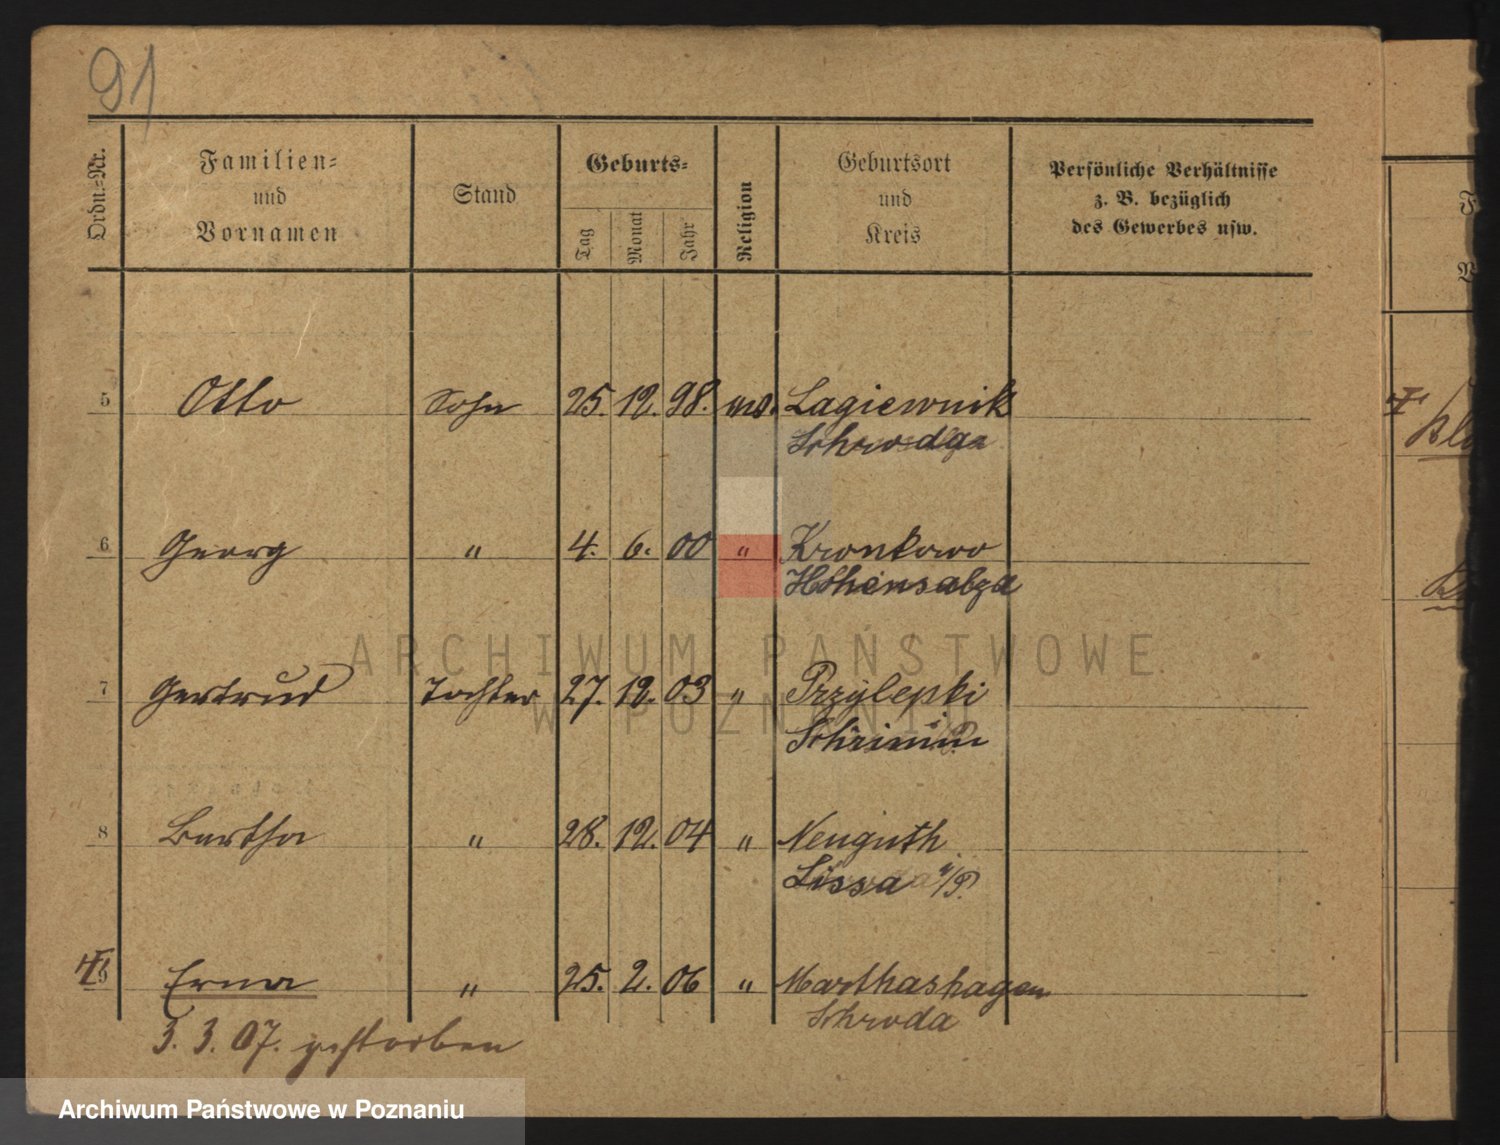 91
Ordn.=Nr.
Familien=
und
Vornamen
Stand
Geburts=
Tag
Monat
Jahr
Religion
Geburtsort
und
Kreis
Persönliche Verhältnisse
z. B. bezüglich
des Gewerbes usw.
5 Otto Sohn 25. 12. 98. Lagiewnik
Schroda
6 Georg " 4. 6. 00 " Kronkowo
Hohensalza
7 Gertrud Tochter 27. 12. 03 " Przylepki
Schrimm
8 Bertha " 28. 12. 04 " Neuguth
Lissa i/P.
9 Erna " 25. 2. 06 " Marthashagen
Schroda
3. 3. 07. gestorben
ARCHIWUM PAŃSTWOWE
W POZNANIU
Archiwum Państwowe w Poznaniu